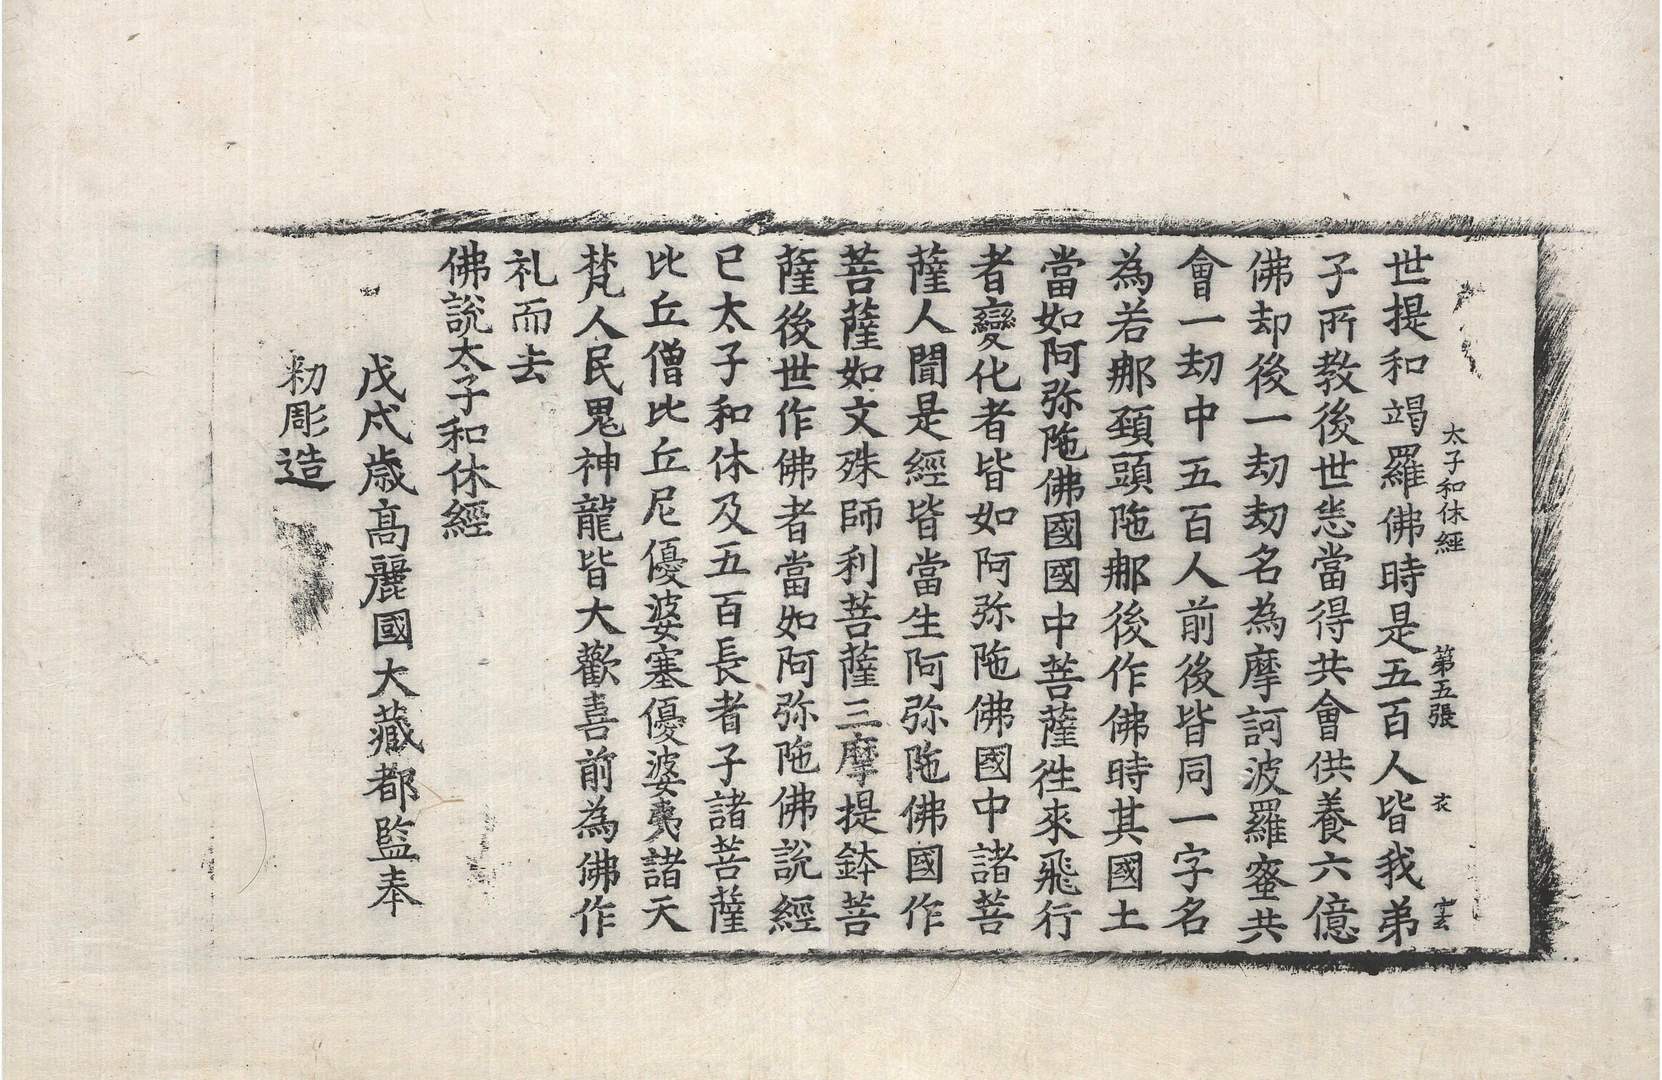 太子和休経 第五張 衣 雲
世提和竭羅佛時是五百人皆我弟
子所教後世悉當得共會供養六億
佛却後一劫劫名為摩訶波羅蜜共
會一劫中五百人前後皆同一字名
為若那頸頭陁那後作佛時其國土
當如阿弥陁佛國國中菩薩徃來飛行
者變化者皆如阿弥陁佛國中諸菩
薩人聞是經皆當生阿弥陁佛國作
菩薩如文殊師利菩薩三摩提鉢菩
薩後世作佛者當如阿弥陁佛說經
已太子和休及五百長者子諸菩薩
比丘僧比丘尼優婆塞優婆夷諸天
梵人民鬼神龍皆大歡喜前為佛作
礼而去
佛說太子和休經
戊戌歳高麗國大藏都監奉
勑彫造